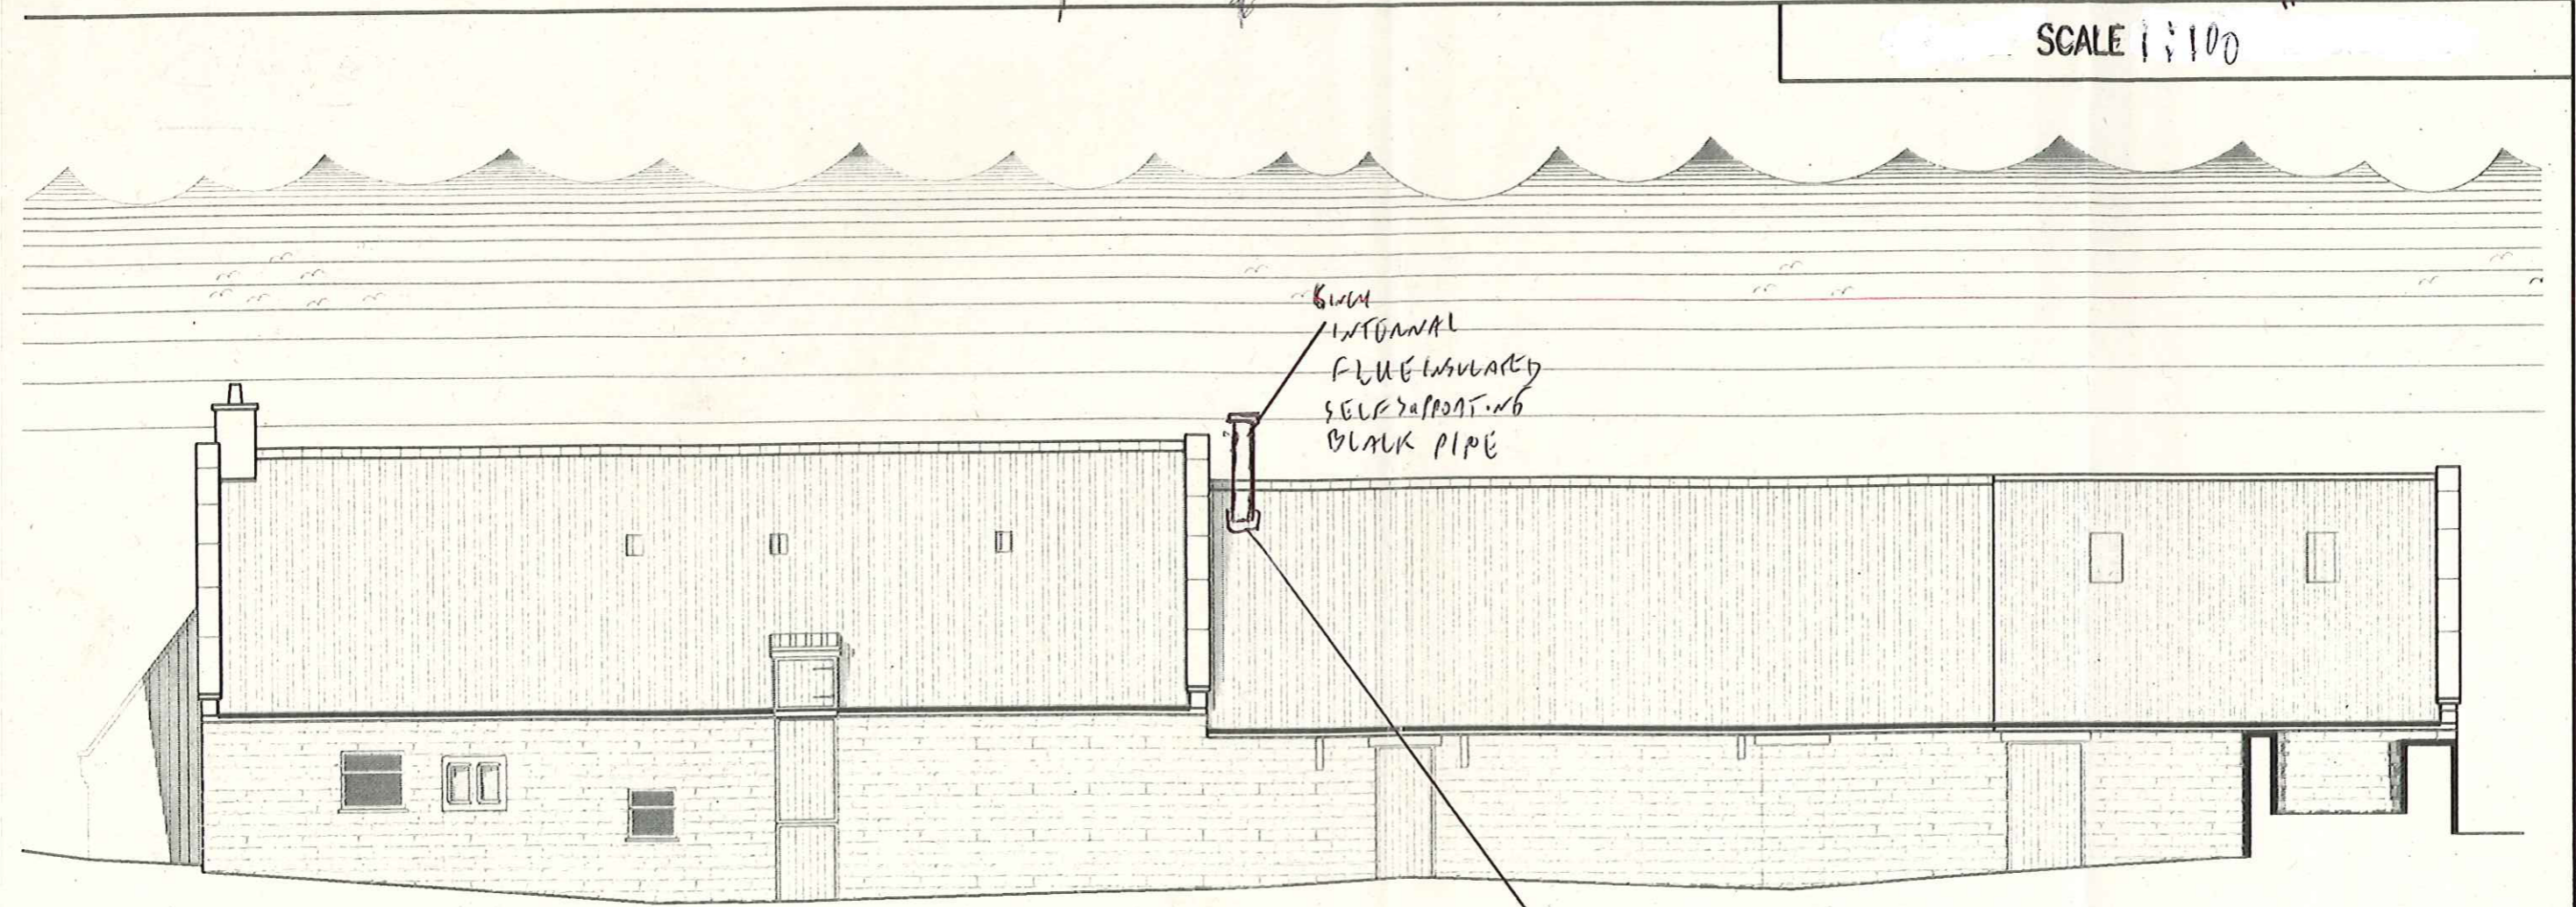 SCALE 1:100
6 INCH
INTERNAL
FLUE INSULATED
SELF SUPPORTING
BLACK PIPE